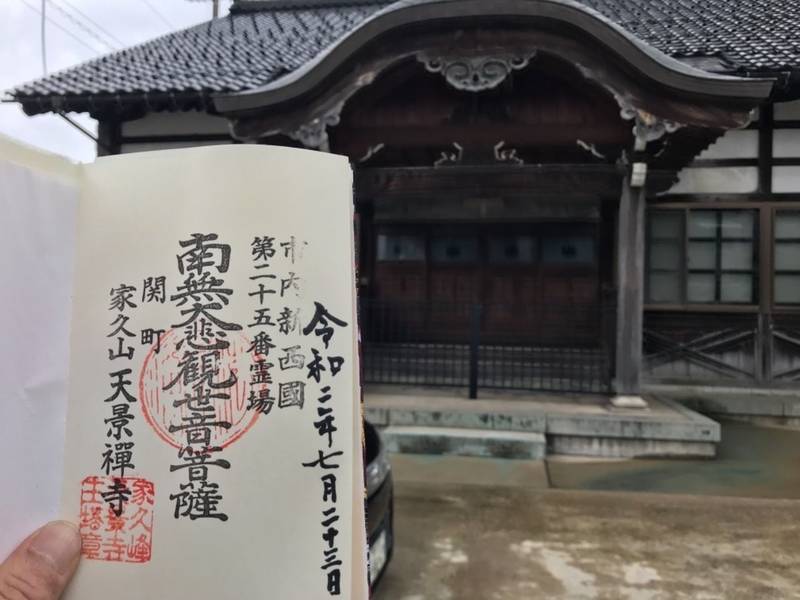 令和二年七月二十三日
市内新西國
第二十五番霊場
南無大悲観世音菩薩
関町
家久山天景禪寺
家久峰